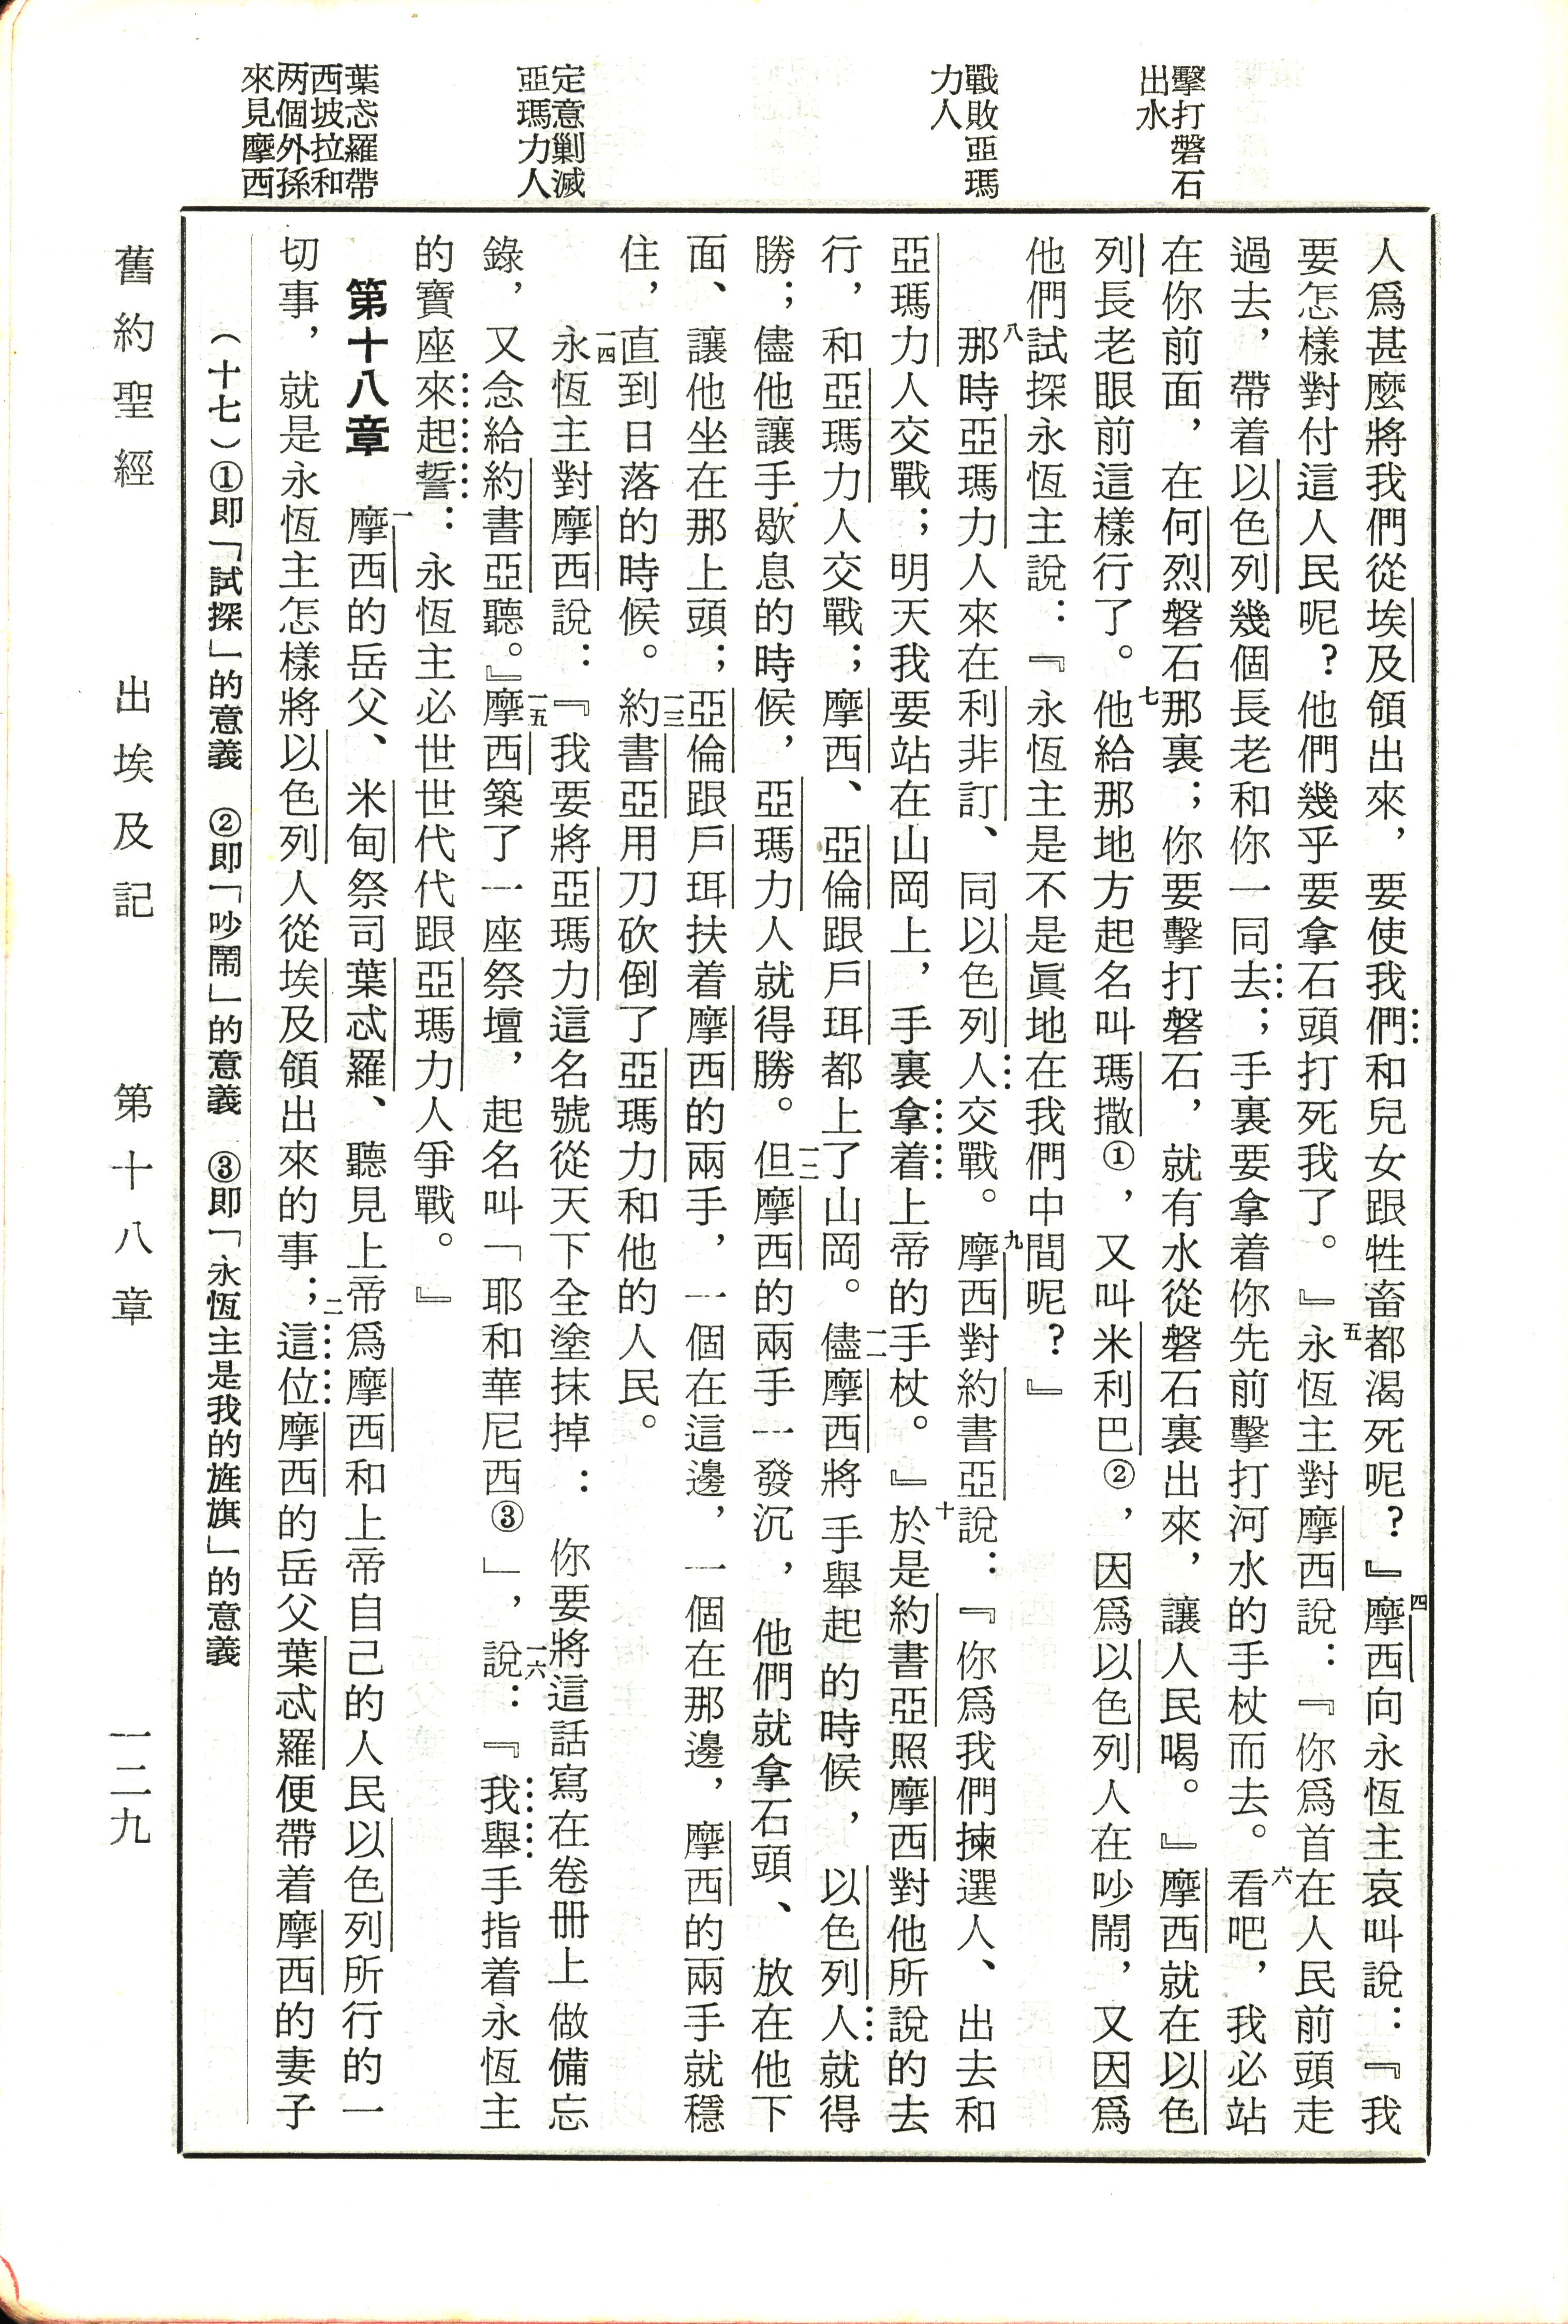 擊打磐石
出水
戰敗亞瑪
力人
定意剿滅
亞瑪力人
葉忒羅帶
西坡拉和
两個外孫
來見摩西
人爲甚麼將我們從埃及領出來，要使我們和兒女跟牲畜都渴死呢？』四摩西向永恆主哀叫說：『我
要怎樣對付這人民呢？他們幾乎要拿石頭打死我了。』五永恆主對摩西說：『你爲首在人民前頭走
過去，帶着以色列幾個長老和你一同去；手裏要拿着你先前擊打河水的手杖而去。六看吧，我必站
在你前面，在何烈磐石那裏；你要擊打磐石，就有水從磐石裏出來，讓人民喝。』摩西就在以色
列長老眼前這樣行了。七他給那地方起名叫瑪撒①，又叫米利巴②，因爲以色列人在吵鬧，又因爲
他們試探永恆主說：『永恆主是不是眞地在我們中間呢？』
八那時亞瑪力人來在利非訂、同以色列人交戰。九摩西對約書亞說：『你爲我們揀選人、出去和
亞瑪力人交戰；明天我要站在山岡上，手裏拿着上帝的手杖。』十於是約書亞照摩西對他所說的去
行，和亞瑪力人交戰；摩西、亞倫跟戶珥都上了山岡。一一儘摩西將手舉起的時候，以色列人就得
勝；儘他讓手歇息的時候，亞瑪力人就得勝。一二但摩西的兩手一發沉，他們就拿石頭、放在他下
面、讓他坐在那上頭；亞倫跟戶珥扶着摩西的兩手，一個在這邊，一個在那邊，摩西的兩手就穩
住，直到日落的時候。一三約書亞用刀砍倒了亞瑪力和他的人民。
一四永恆主對摩西說：『我要將亞瑪力這名號從天下全塗抹掉：你要將這話寫在卷冊上做備忘
錄，又念給約書亞聽。』一五摩西築了一座祭壇，起名叫「耶和華尼西③」，一六說：『我舉手指着永恆主
的寶座來起誓：永恆主必世世代代跟亞瑪力人爭戰。』
第十八章 一摩西的岳父、米甸祭司葉忒羅、聽見上帝爲摩西和上帝自己的人民以色列所行的一
切事，就是永恆主怎樣將以色列人從埃及領出來的事；二這位摩西的岳父葉忒羅便帶着摩西的妻子
（十七）①即「試探」的意義 ②即「吵鬧」的意義 ③即「永恆主是我的旌旗」的意義
舊約聖經 出埃及記 第十八章 一二九